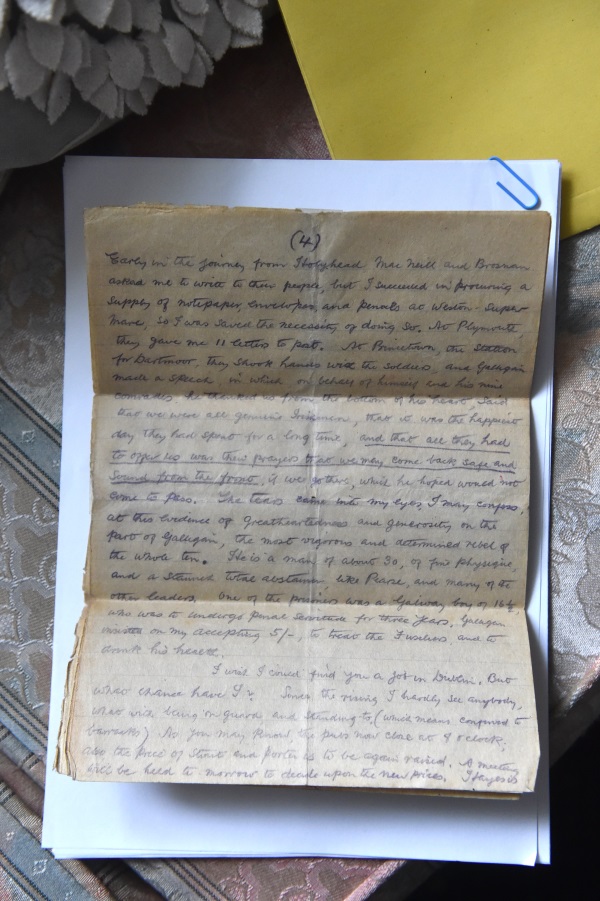 (4)
Early in the journey from Holyhead MacNeill and Brosnan
asked me to write to their people, but I succeeded in procuring a
supply of notepaper, envelopes, and pencils at Weston-Super
Mare, so I was saved the necessity of doing so. At Plymouth,
they gave me 11 letters to post. At Princetown, the station
for Dartmoor, they shook hands with the soldiers, and Galligan
made a speech, in which, on behalf of himself and his nine
comrades he thanked us from the bottom of his heart, said
that we were all genuine Irishmen, that it was the happiest
day they had spent for a long time, and that all they had
to offer us was their prayers that we may come back safe and
sound from the front, if we go there, which he hoped would not
come to pass. The tears came into my eyes I may confess,
at this evidence of greatheartedness and generosity on the
part of Galligan, the most vigorous and determined rebel of
the whole ten. He is a man of about 30, of fine physique,
and a staunch total abstainer like Pearse, and many of the
other leaders. One of the prisoners was a Galway boy of 16½
who was to undergo penal servitude for three years, Galligan
insisted on my accepting 5/-, to treat the Fusiliers and to
drink his health.
I wish I could find you a job in Dublin. But
what chance have I? Since the rising I hardly see anybody,
what with being on guard, and standing to, (which means confined to
barracks). As you may know the pubs now close at 8 o'clock,
also the price of stout and porter is to be again raised. A meeting
will be held to morrow to decide upon the new prices.